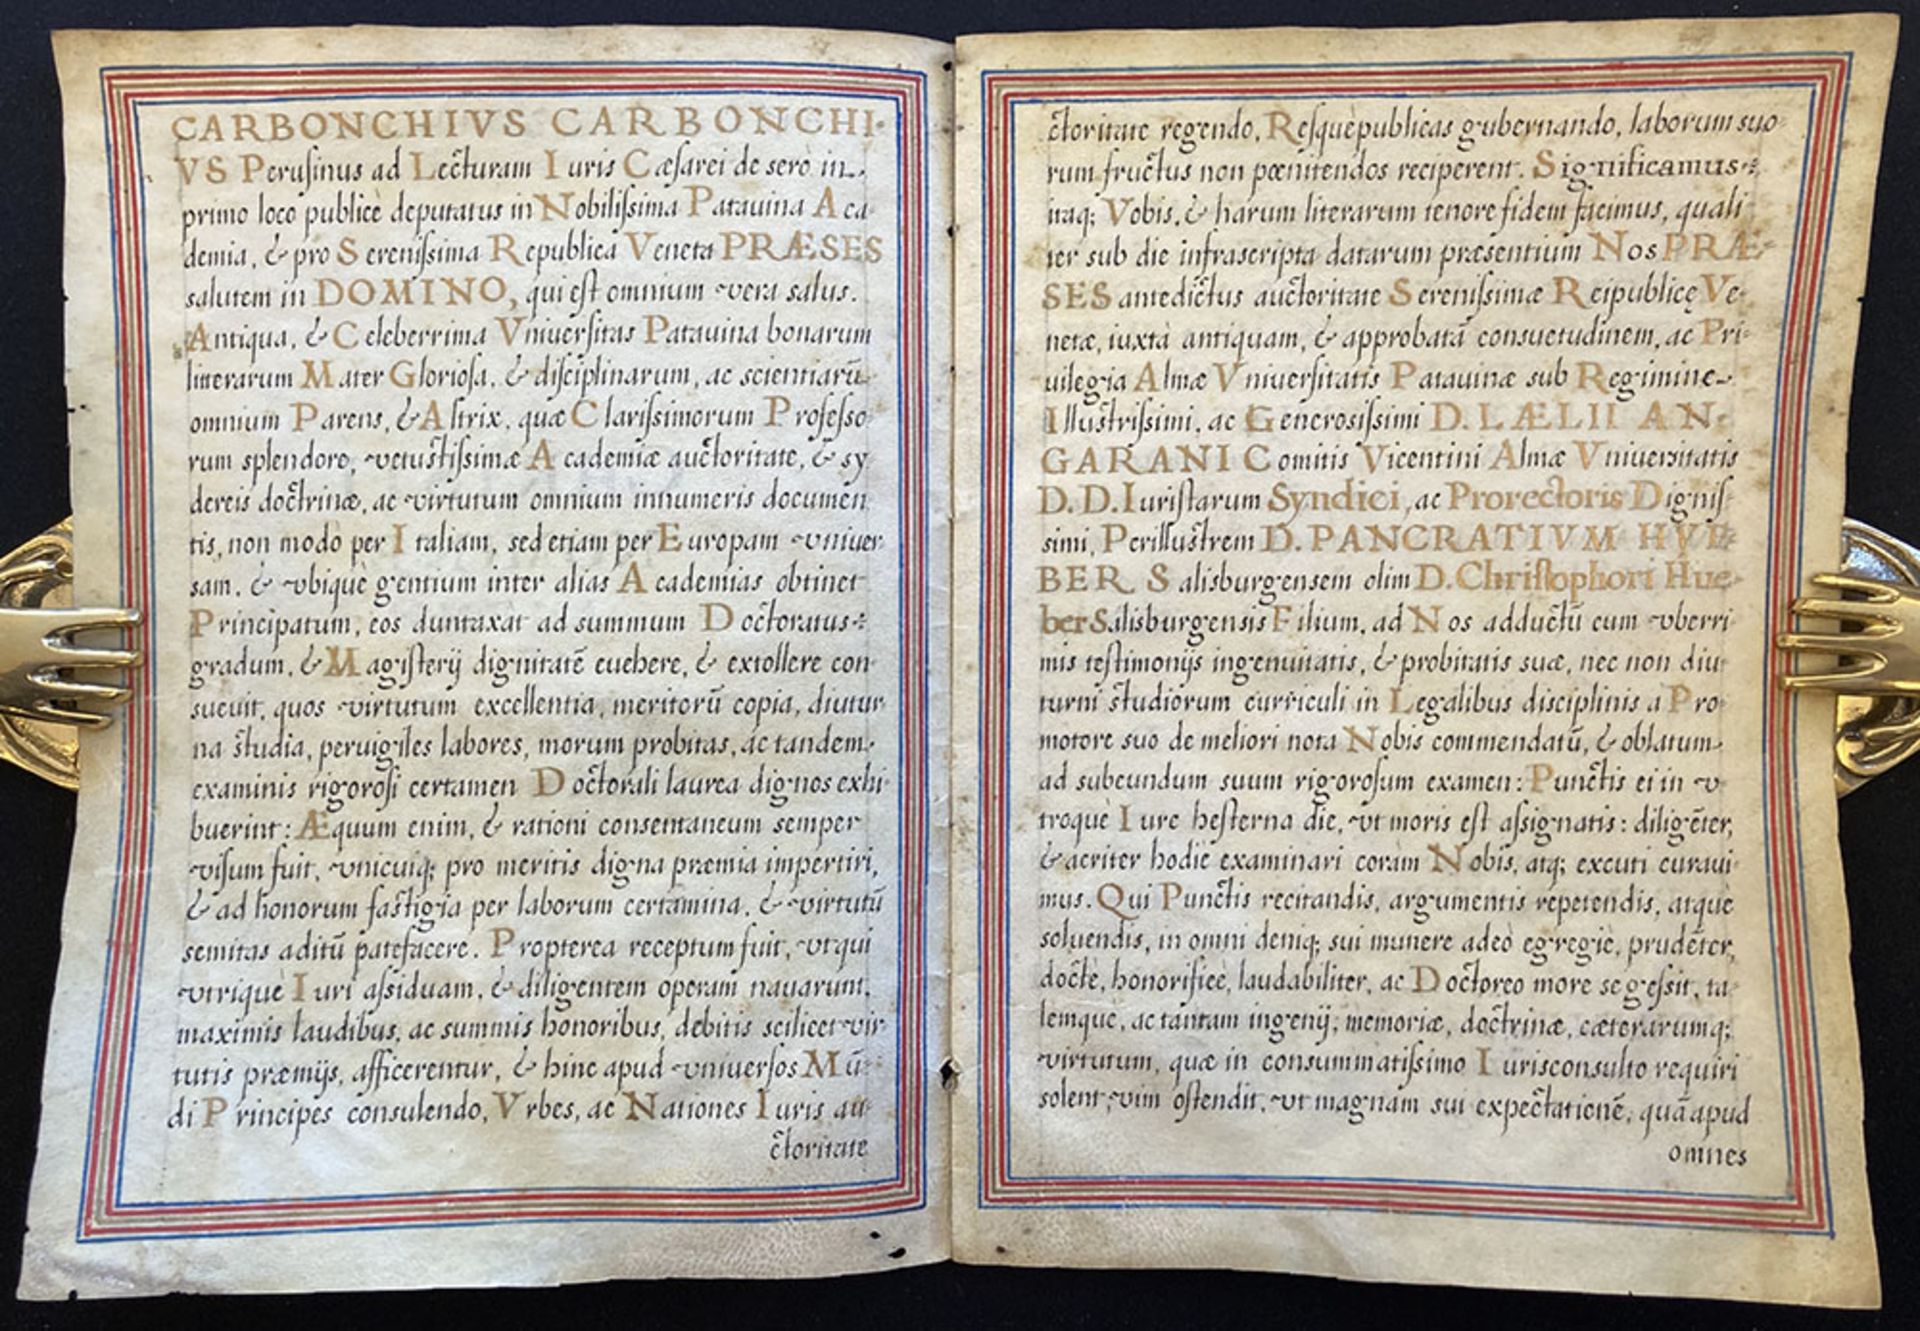 CARBONCHIVS CARBONCHI-
VS Perusinus ad Lecturam Iuris Cæsarei de serò in
primo loco publicè deputatus in Nobilissima Patauina Aca
demia, & pro Serenissima Republica Veneta PRÆSES
salutem in DOMINO, qui est omnium vera salus.
Antiqua, & Celeberrima Vniuersitas Patauina bonarum
litterarum Mater Gloriosa, & disciplinarum, ac scientiarū
omnium Parens, & Altrix, quæ Clarissimorum Professo
rum splendore, vetustissimæ Academiæ auctoritate, & sy
dereis doctrinæ, ac virtutum omnium innumeris documen
tis, non modò per Italiam, sed etiam per Europam vniuer
sam, & vbiquè gentium inter alias Academias obtinet
Principatum, eos duntaxat ad summum Doctoratus
gradum, & Magisterij dignitatē euehere, & extollere con
sueuit, quos virtutum excellentia, meritorū copia, diutur
na studia, peruigiles labores, morum probitas, ac tandem
examinis rigorosi certamen Doctorali laurea dignos exhi
buerint: Æquum enim, & rationi consentaneum semper
visum fuit, vnicuiq; pro meritis digna præmia impertiri,
& ad honorum fastigia per laborum certamina, & virtutū
semitas aditū patefacere. Propterea receptum fuit, vt qui
vtriquè Iuri assiduam, & diligentem operam nauarunt,
maximis laudibus, ac summis honoribus, debitis scilicet vir
tutis præmijs, afficerentur, & hinc apud vniuersos Mū
di Principes consulendo, Vrbes, ac Nationes Iuris au
ctoritate
ctoritate regendo, Resquèpublicas gubernando, laborum suo
rum fructus non pœnitendos reciperent. Significamus
itaq; Vobis, & harum literarum tenore fidem facimus, quali
ter sub die infrascripta datarum præsentium Nos PRÆ-
SES antedictus auctoritate Serenissimæ Reipublicę Ve-
netæ, iuxtà antiquam, & approbatā consuetudinem, ac Pri-
uilegia Almæ Vniuersitatis Patauinæ sub Regimine
Illustrissimi, ac Generosissimi D. LÆLII AN-
GARANI Comitis Vicentini Almæ Vniuersitatis
D. D. Iuristarum Syndici, ac Prorectoris Dignis-
simi, Perillustrem D. PANCRATIVM HVE-
BER Salisburgensem olim D. Christophori Hue-
ber Salisburgensis Filium, ad Nos adductū cum vberri
mis testimonijs ingenuitatis, & probitatis suæ, nec non diu
turni studiorum curriculi in Legalibus disciplinis a Pro
motore suo de meliori nota Nobis commendatū, & oblatum
ad subeundum suum rigorosum examen: Punctis ei in v
troquè Iure hesterna die, vt moris est assignatis: diligēter,
& acriter hodie examinari coràm Nobis, atq; excuti curaui
mus. Qui Punctis recitandis, argumentis repetendis, atquè
soluendis, in omni deniq; sui munere adeò egregiè, prudēter,
doctè, honorificè, laudabiliter, ac Doctoreo more se gessit, ta
lemque, ac tantam ingenij, memoriæ, doctrinæ, cæterarumq;
virtutum, quæ in consummatissimo Iurisconsulto requiri
solent, vim ostendit, vt magnam sui expectationē, quā apud
omnes